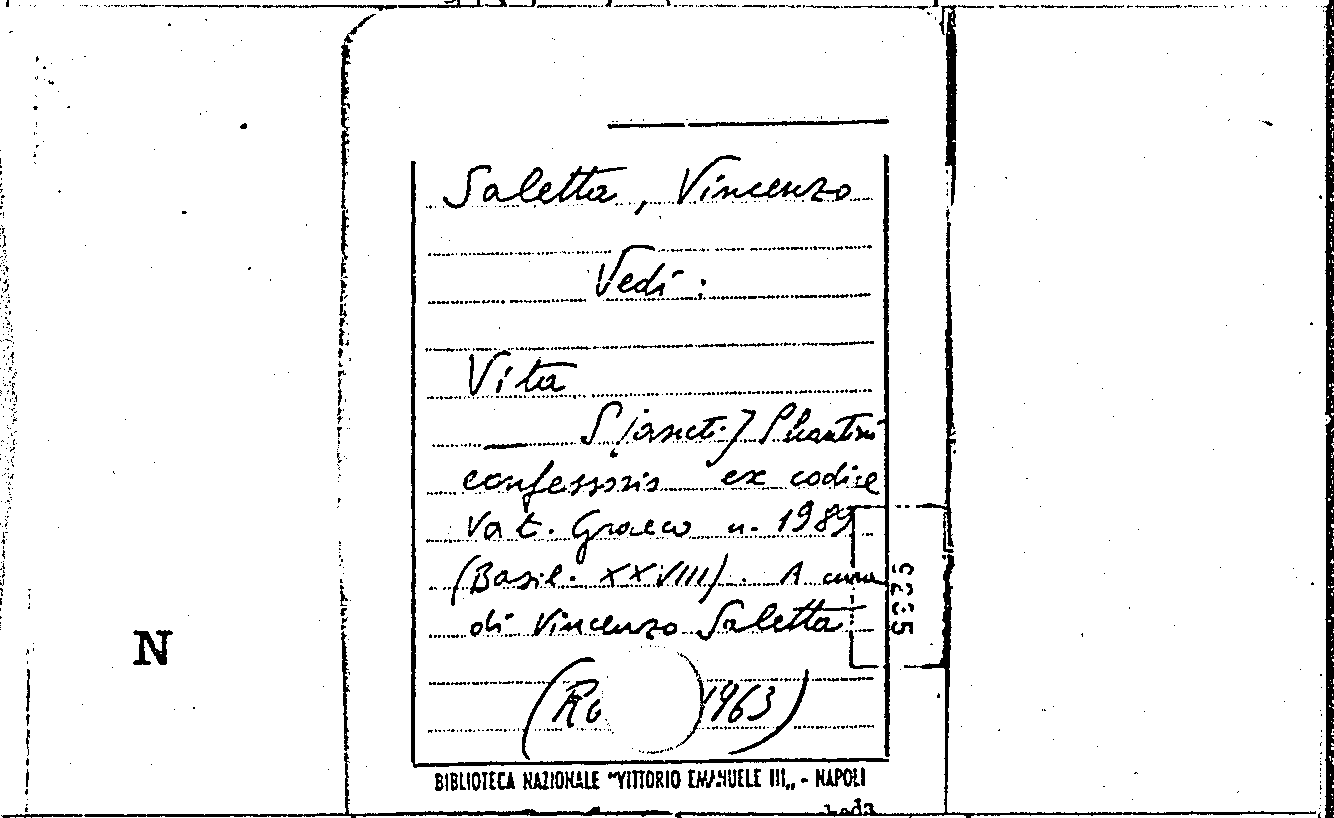 Saletta, Vincenzo
Vedi:
Vita
— S[ancti] Phantini
confessoris ex codice
Vat. Graeco n. 1989
(Basil. XXVIII). A cura
di Vincenzo Saletta
(Ro 1963)
N
BIBLIOTECA NAZIONALE "VITTORIO EMANUELE III„ - NAPOLI